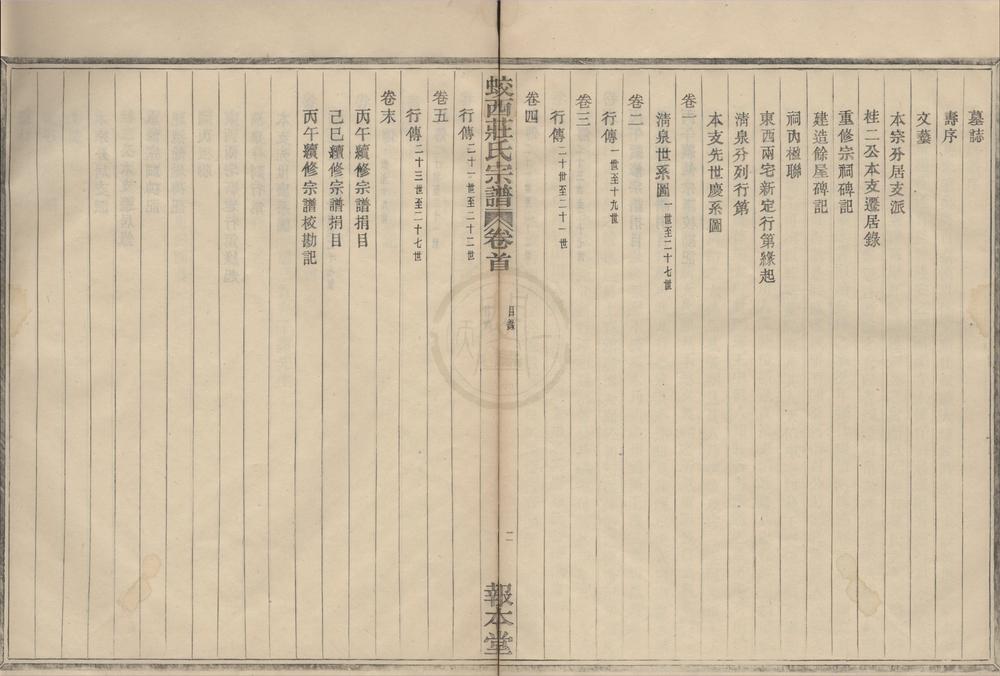 墓誌
壽序
文藝
本宗分居支派
桂二公本支遷居錄
重修宗祠碑記
建造餘屋碑記
祠內楹聯
東西兩宅新定行第緣起
清泉分列行第
本支先世慶系圖
卷一
清泉世系圖一世至二十七世
卷二
行傳一世至十九世
卷三
行傳二十世至二十一世
卷四
蛟西莊氏宗譜 卷首 目錄 二 報本堂
行傳二十一世至二十二世
卷五
行傳二十三世至二十七世
卷末
丙午續修宗譜捐目
己巳續修宗譜捐目
丙午續修宗譜核勘記